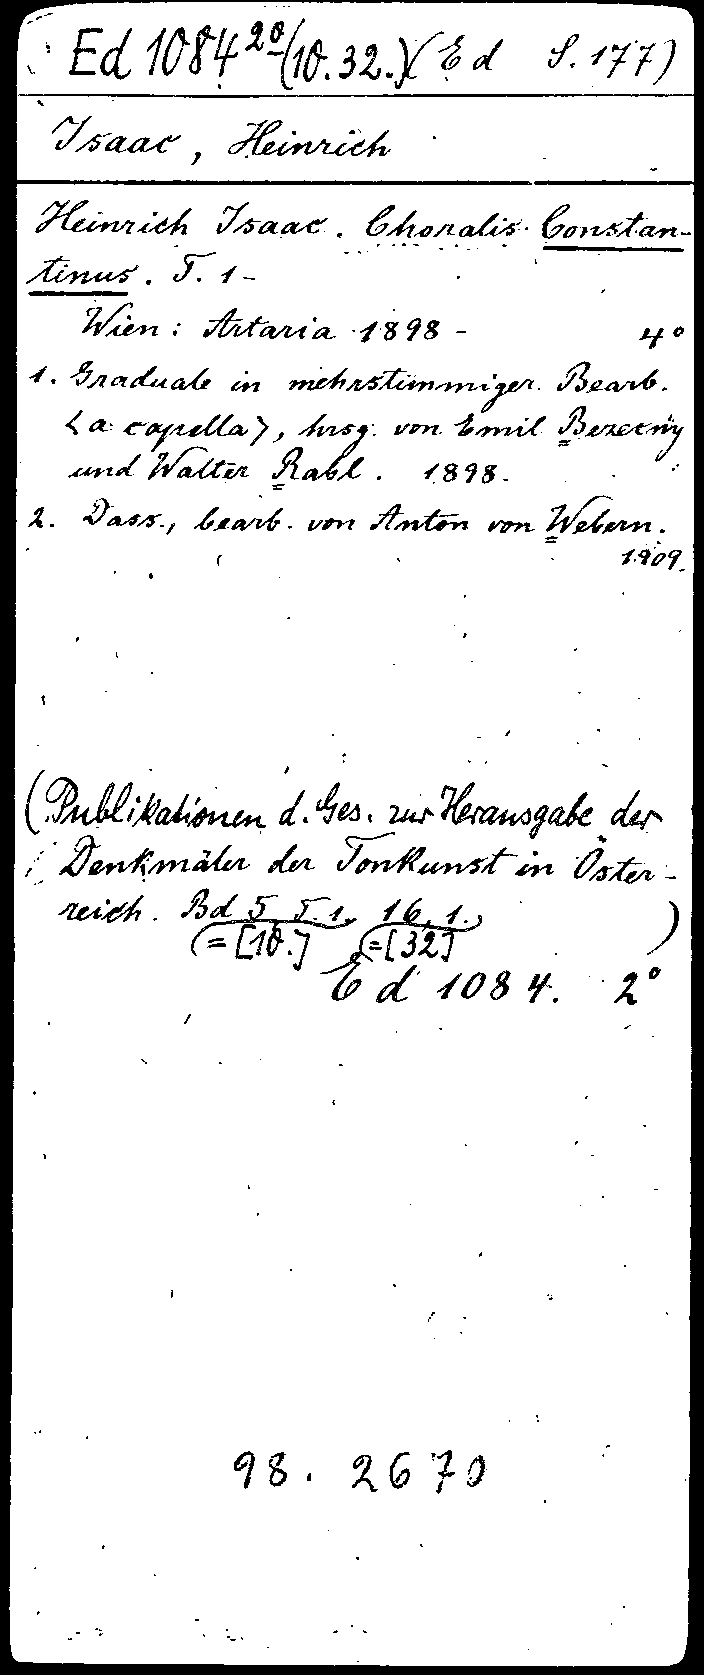 Ed 1084 2º (10.32.) (Ed S. 177)
Isaac, Heinrich
Heinrich Isaac. Choralis Constan-
tinus. T. 1-
Wien: Artaria 1898- 4º
1. Graduale in mehrstimmiger Bearb.
<a capella>, hrsg. von Emil Bezecny
und Walter Rabl. 1898.
2. Dass., bearb. von Anton von Webern.
1909.
(Publikationen d. Ges. zur Herausgabe der
Denkmäler der Tonkunst in Öster-
reich. Bd 5, T. 1, 16, 1.)
(=[10.] (=[32]
Ed 1084. 2º
98. 2670